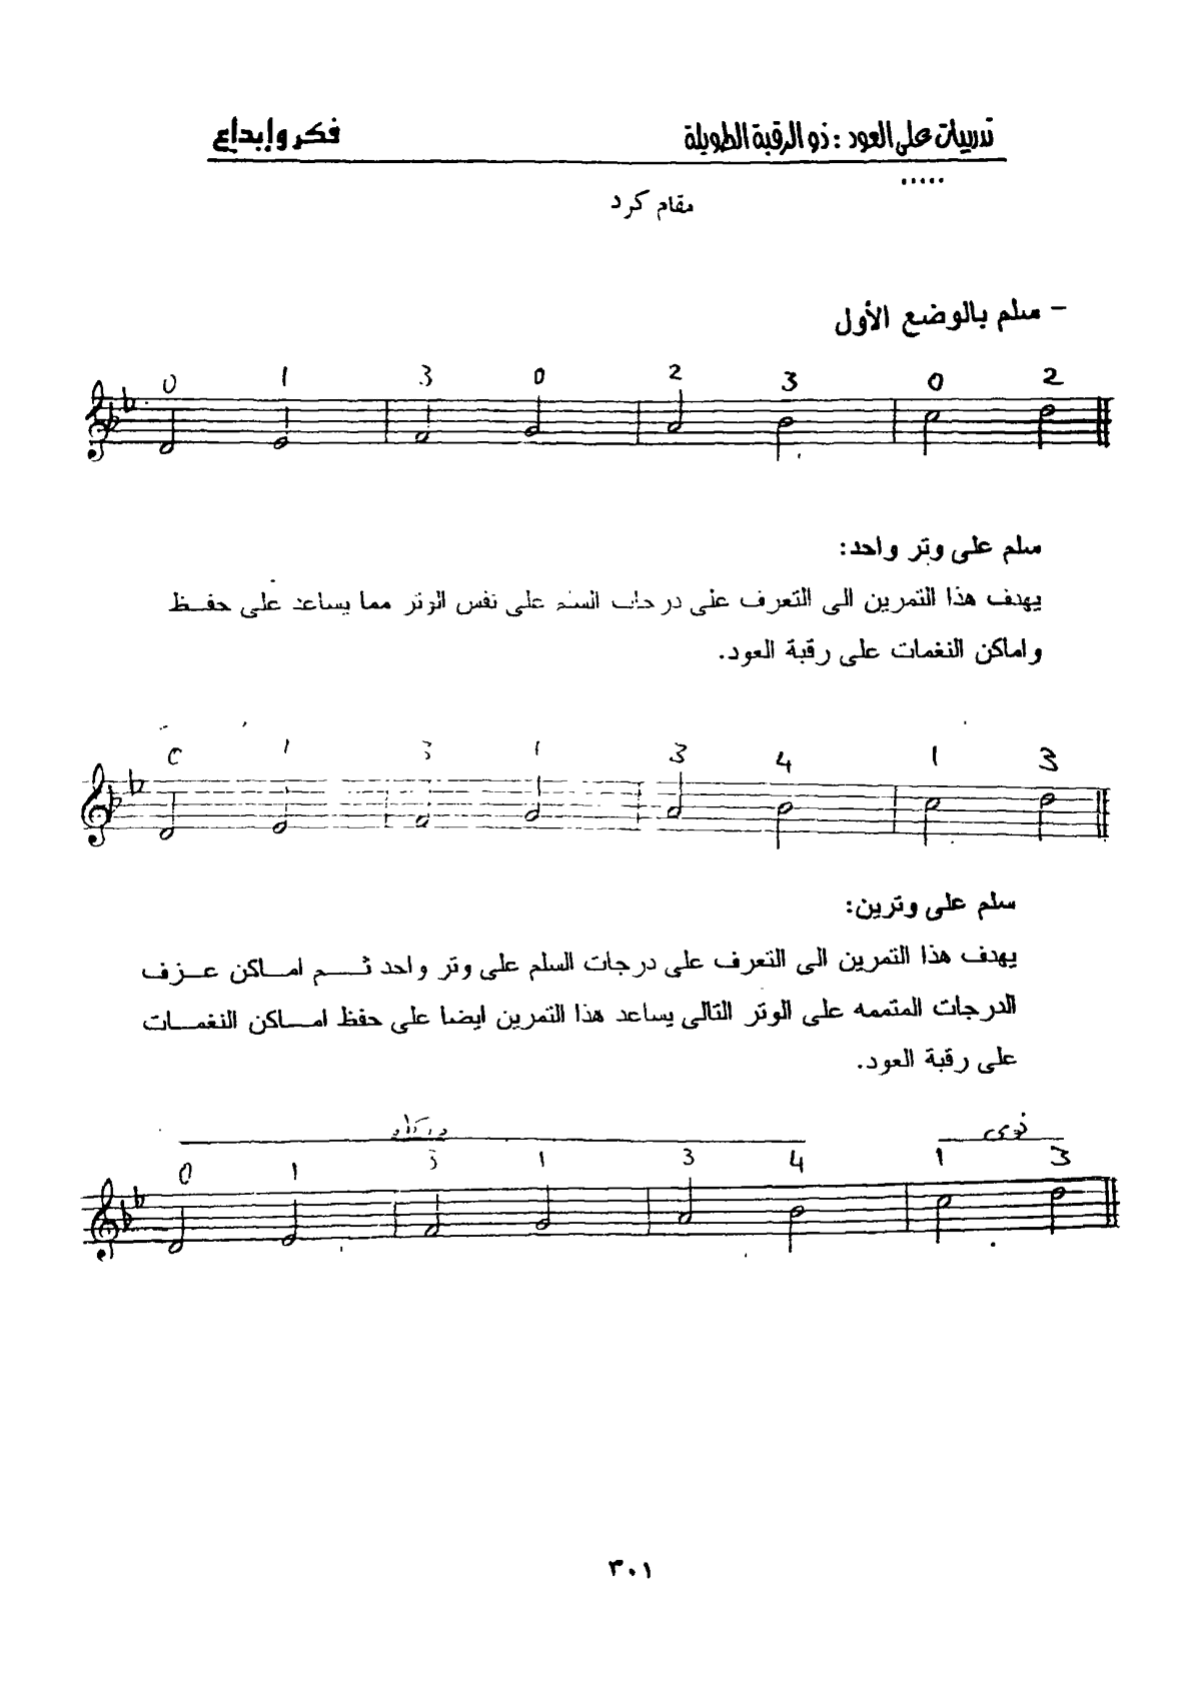 تدريبات على العود : ذو الرقبة الطويلة
فكر وإبداع
.....
مقام كرد
- سلم بالوضع الأول
0 1 3 0 2 3 0 2
سلم على وتر واحد:
يهدف هذا التمرين الى التعرف على درجات السلم على نفس الوتر مما يساعد على حفـــظ
واماكن النغمات على رقبة العود.
0 1 3 1 3 4 1 3
سلم على وترين:
يهدف هذا التمرين الى التعرف على درجات السلم على وتر واحد ثـــم امـــاكن عـــزف
الدرجات المتممه على الوتر التالى يساعد هذا التمرين ايضا على حفظ امـــاكن النغمـــات
على رقبة العود.
دوكاه نوى
0 1 3 1 3 4 1 3
٣٠١